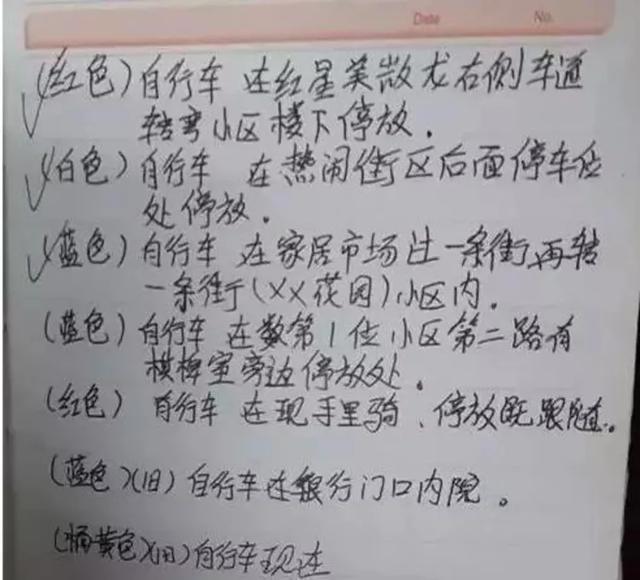 Date No.
(红色)自行车 在红星美凯龙右侧车道
转弯小区楼下停放.
(白色)自行车 在热闹街区后面停车位
处停放.
(蓝色)自行车 在家居市场过一条街再转
一条街(XX花园)小区内.
(蓝色)自行车 在数第1位小区第二路有
棋牌室旁边停放处.
(红色) 自行车 在现手里骑、停放既跟随.
(蓝色)(旧)自行车在银行门口内院。
(橘黄色)(旧)自行车现在